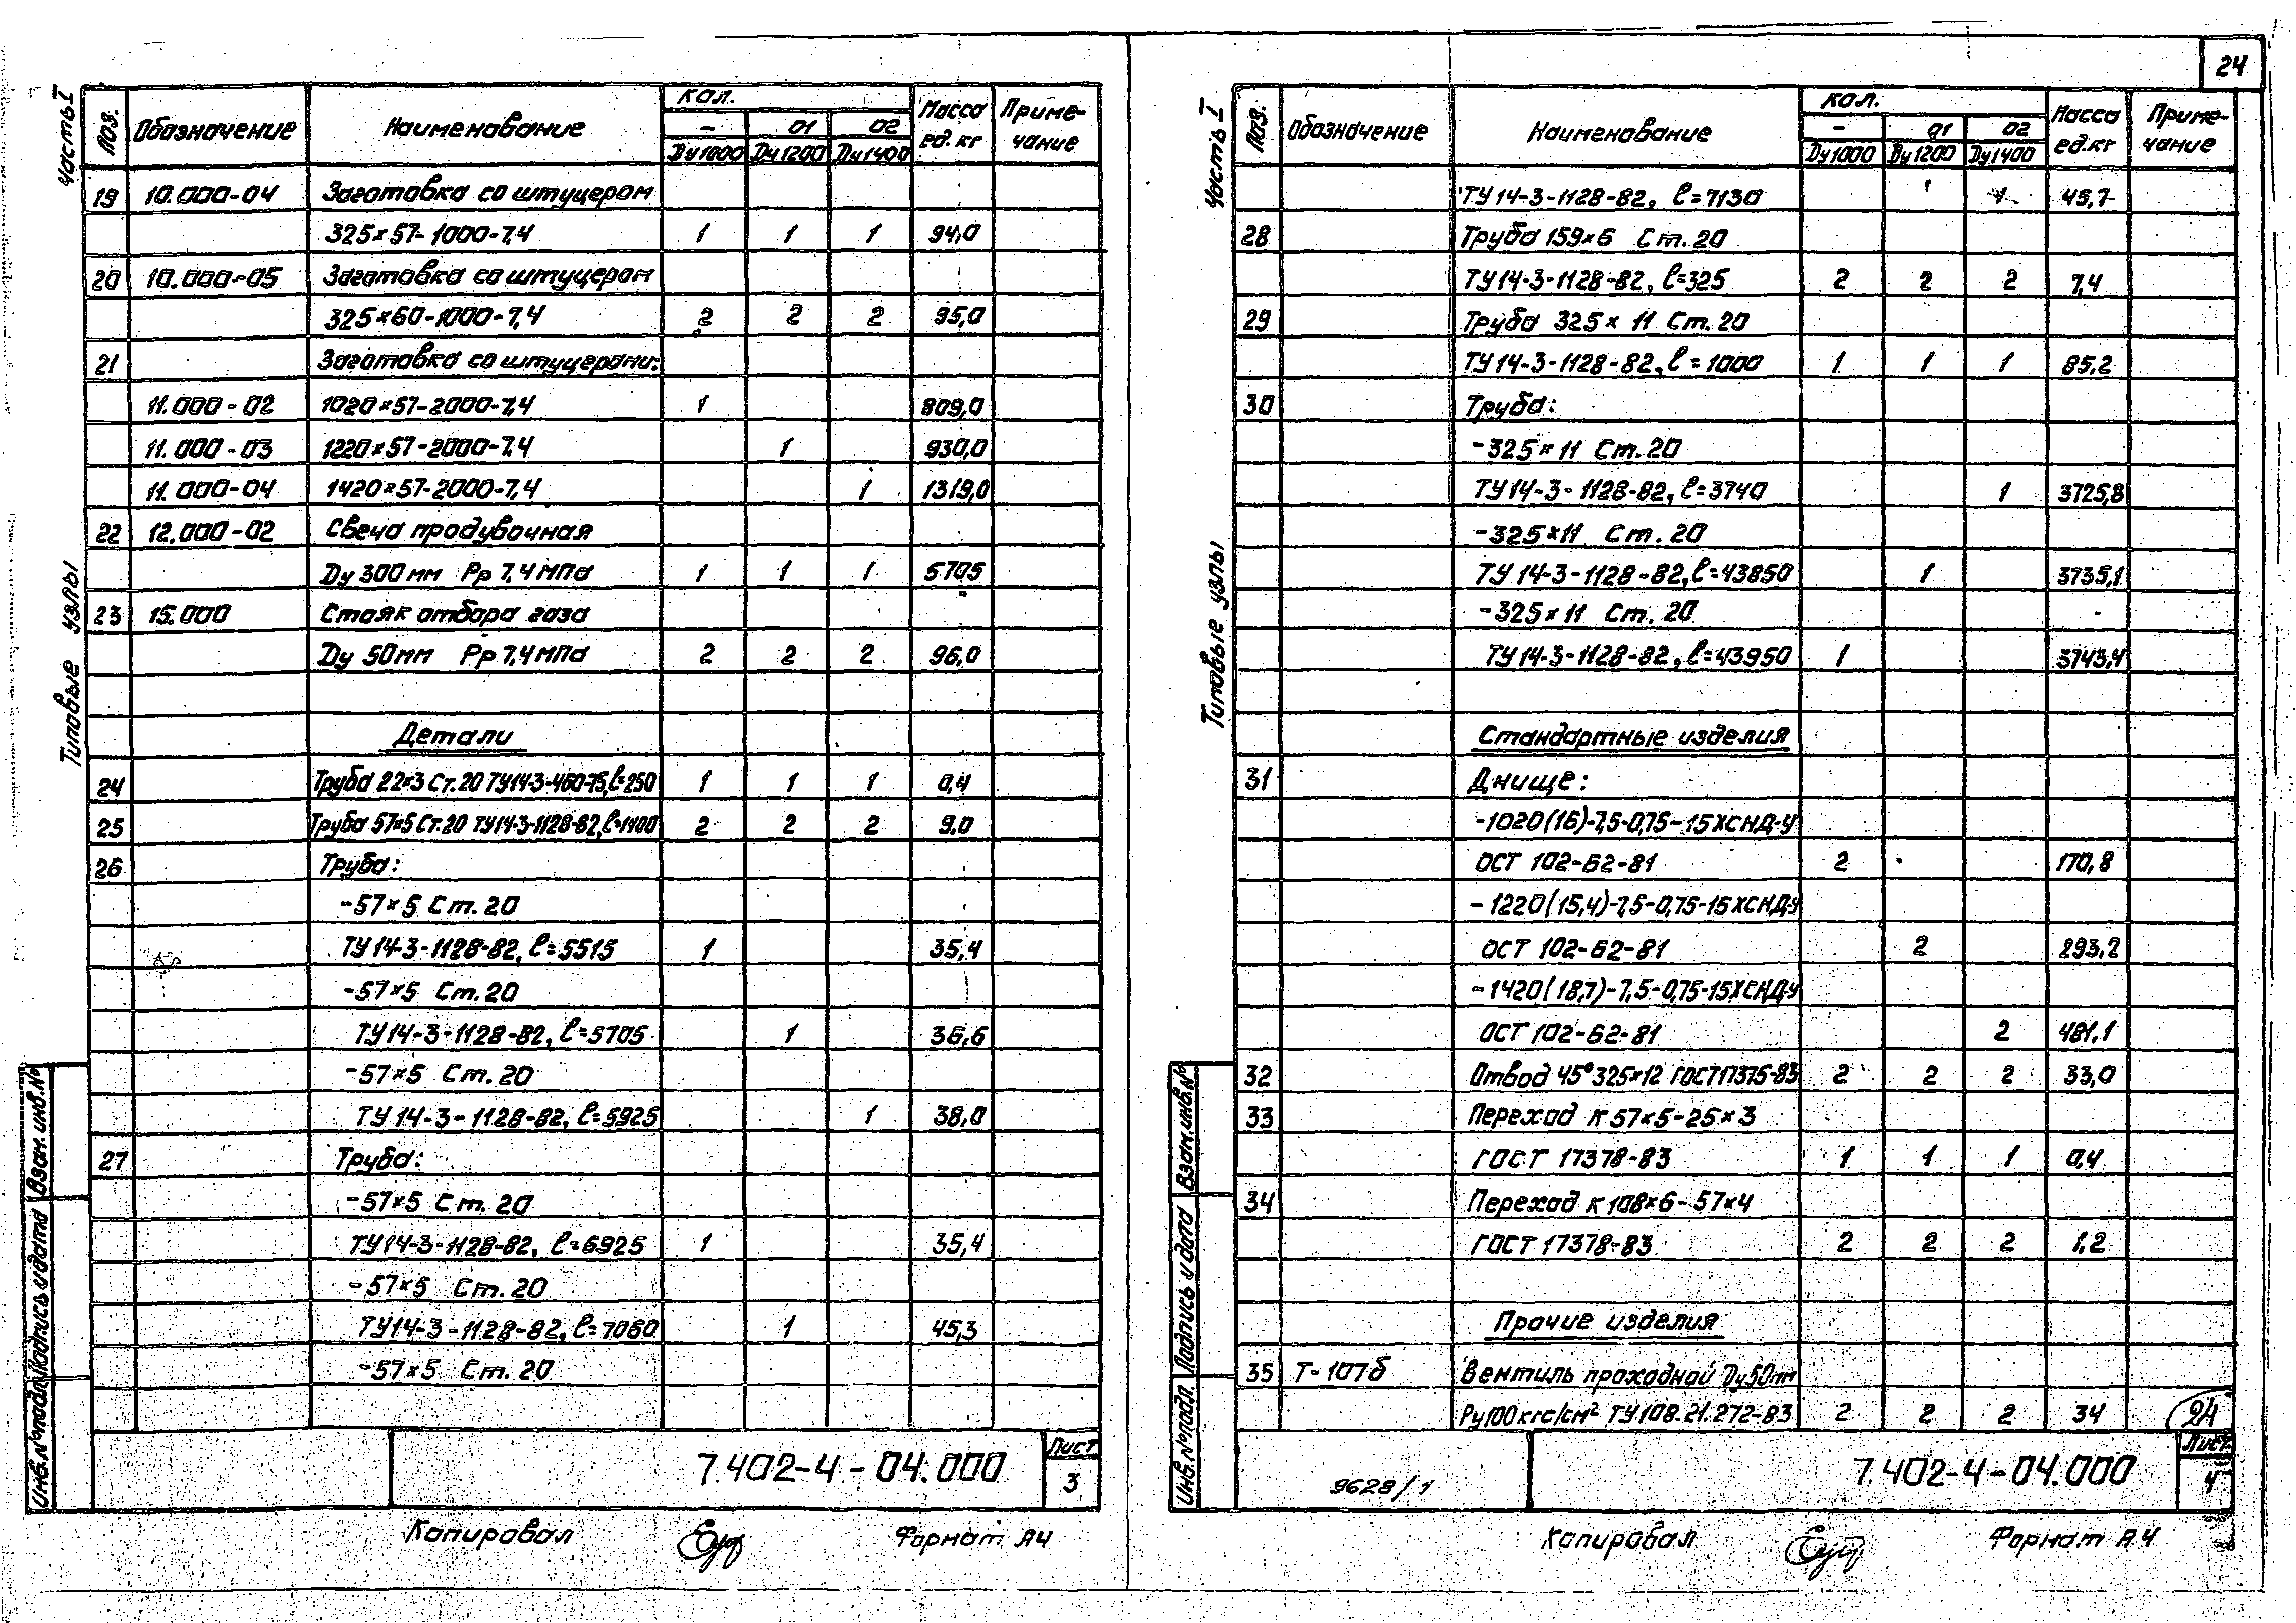 24
Часть I
Типовые узлы
Поз. Обозначение Наименование Кол. Масса ед. кг Примечание
- 01 02
Ду1000 Ду1200 Ду1400
19 10.000-04 Заготовка со штуцером
325×57-1000-7,4 1 1 1 94,0
20 10.000-05 Заготовка со штуцером
325×60-1000-7,4 2 2 2 95,0
21 Заготовка со штуцерами:
11.000-02 1020×57-2000-7,4 1 809,0
11.000-03 1220×57-2000-7,4 1 930,0
11.000-04 1420×57-2000-7,4 1 1319,0
22 12.000-02 Свеча продувочная
Ду 300мм Рр 7,4 МПа 1 1 1 5705
23 15.000 Стояк отбора газа
Ду 50мм Рр 7,4 МПа 2 2 2 96,0
Детали
24 Труба 22×3 Ст.20 ТУ14-3-460-75, l=250 1 1 1 0,4
25 Труба 57×5 Ст.20 ТУ14-3-1128-82, l=1400 2 2 2 9,0
26 Труба:
-57×5 Ст.20
ТУ 14-3-1128-82, l=5515 1 35,4
-57×5 Ст.20
ТУ 14-3-1128-82, l=5705 1 36,6
-57×5 Ст.20
ТУ 14-3-1128-82, l=5925 1 38,0
27 Труба:
-57×5 Ст.20
ТУ14-3-1128-82, l=6925 1 35,4
-57×5 Ст.20
ТУ14-3-1128-82, l=7060 1 45,3
-57×5 Ст.20
Инв.№ подл. Подпись и дата Взам. инв.№
7.402-4-04.000
Лист
3
Копировал
Формат А4
Часть I
Типовые узлы
Поз. Обозначение Наименование Кол. Масса ед. кг Примечание
- 01 02
Ду1000 Ду1200 Ду1400
ТУ 14-3-1128-82, l=7130 1 45,7
28 Труба 159×6 Ст.20
ТУ 14-3-1128-82, l=325 2 2 2 7,4
29 Труба 325×11 Ст.20
ТУ 14-3-1128-82, l=1000 1 1 1 85,2
30 Труба:
-325×11 Ст.20
ТУ 14-3-1128-82, l=3740 1 3725,8
-325×11 Ст.20
ТУ 14-3-1128-82, l=43850 1 3735,1
-325×11 Ст.20
ТУ 14-3-1128-82, l=43950 1 3743,4
Стандартные изделия
31 Днище:
-1020(16)-7,5-0,75-15ХСНД-У
ОСТ 102-62-81 2 170,8
-1220(15,4)-7,5-0,75-15ХСНД-У
ОСТ 102-62-81 2 293,2
-1420(18,7)-7,5-0,75-15ХСНД-У
ОСТ 102-62-81 2 481,1
32 Отвод 45° 325×12 ГОСТ17375-83 2 2 2 33,0
33 Переход К 57×5-25×3
ГОСТ 17378-83 1 1 1 0,4
34 Переход К 108×6-57×4
ГОСТ 17378-83 2 2 2 1,2
Прочие изделия
35 Т-107б Вентиль проходной Ду50мм
Ру100 кгс/см² ТУ.108.21.272-83 2 2 2 34
24
Инв.№ подл. Подпись и дата Взам. инв.№
9628/1
7.402-4-04.000
Лист
4
Копировал
Формат А4